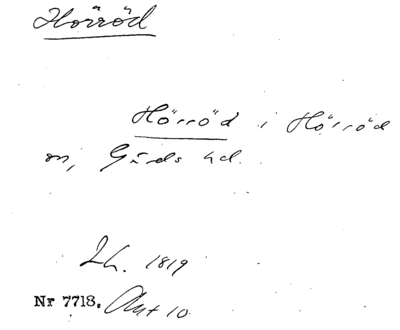 Hörröd
Hörröd i Hörröd
sn, Gärds hd.
Lh. 1819
Nr 7718. Akt 10